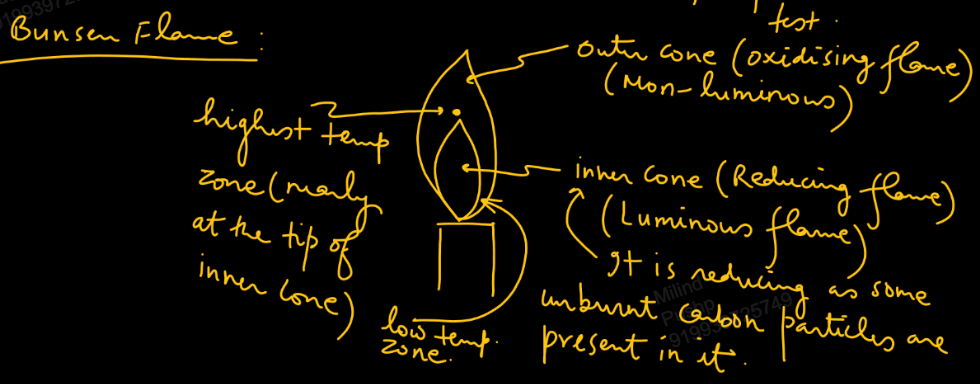 test.
Bunsen Flame :
outer cone (oxidising flame)
(Non-luminous)
highest temp
zone (nearly
at the tip of
inner cone)
inner cone (Reducing flame)
(Luminous flame)
It is reducing as some
unburnt carbon particles are
present in it.
low temp.
zone.
Milind